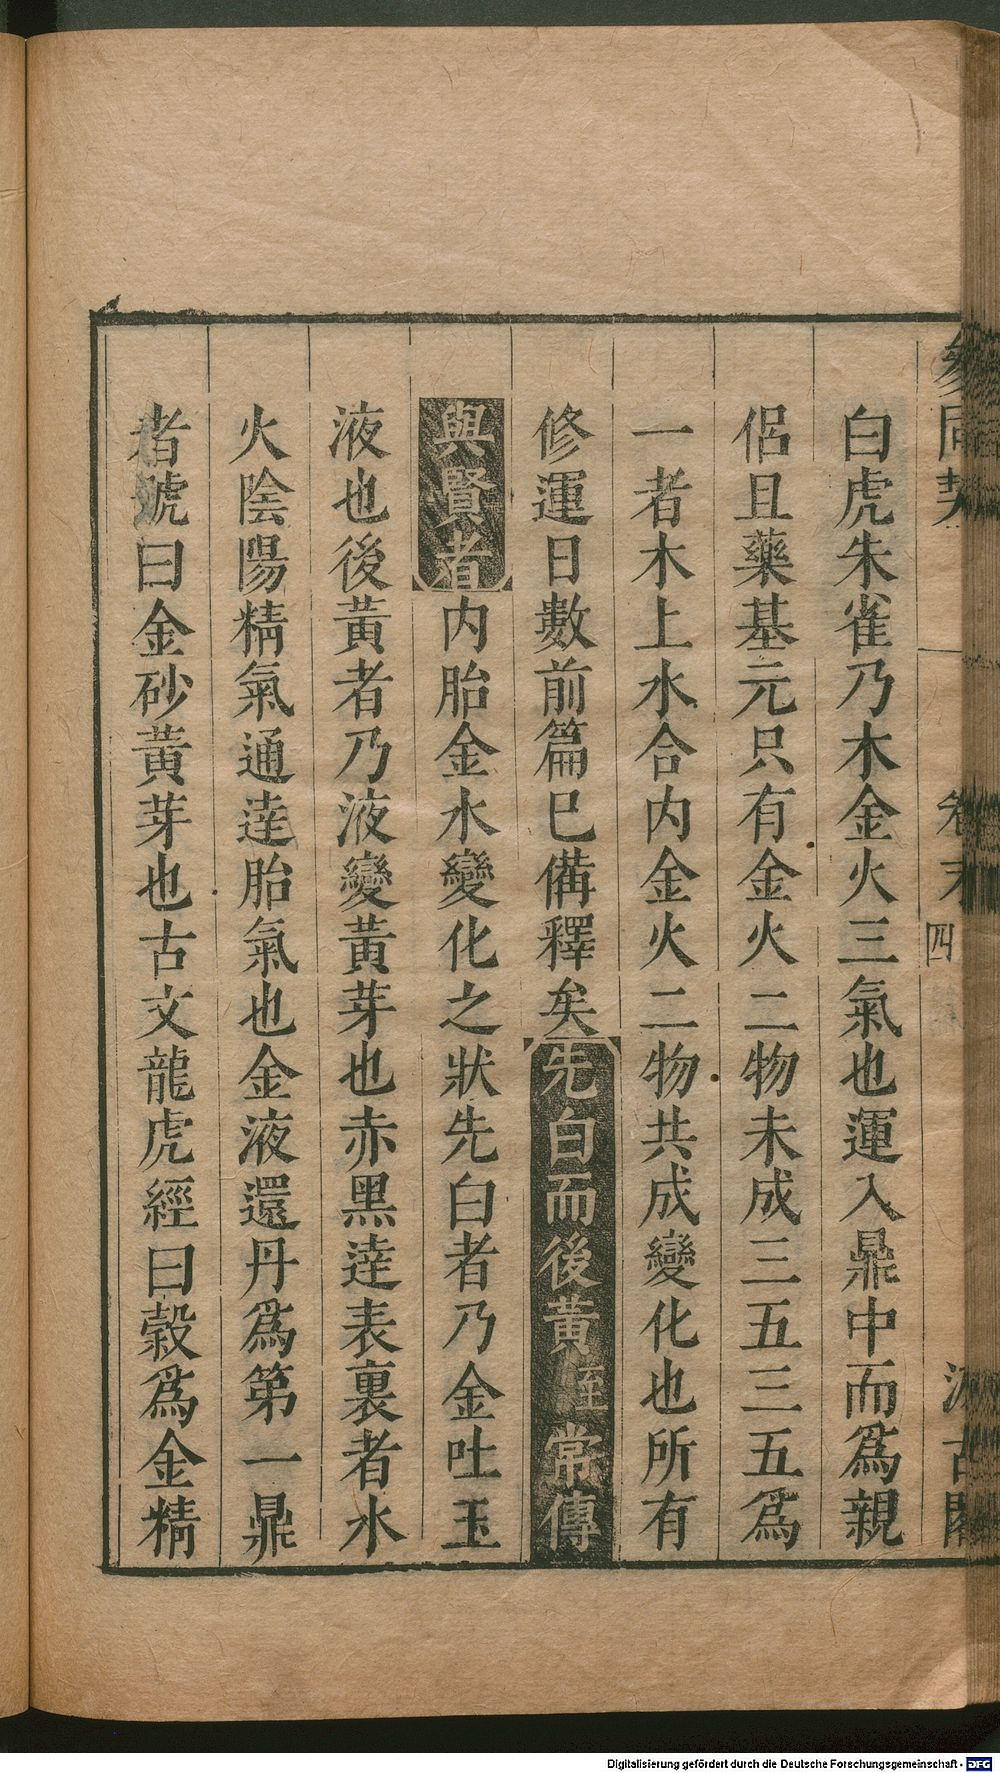 白虎朱雀乃木金火三氣也運入鼎中而爲親
侶且藥基元只有金火二物未成三五三五爲
一者木上水合内金火二物共成變化也所有
修運日數前篇已備釋矣先白而後黃至常傳
與賢者内胎金水變化之狀先白者乃金吐玉
液也後黃者乃液變黃芽也赤黑逹表裏者水
火隂陽精氣通逹胎氣也金液還丹爲第一鼎
者號曰金砂黃芽也古文龍虎經曰榖爲金精
參同契
卷末
四
汲古閣
Digitalisierung gefördert durch die Deutsche Forschungsgemeinschaft - DFG